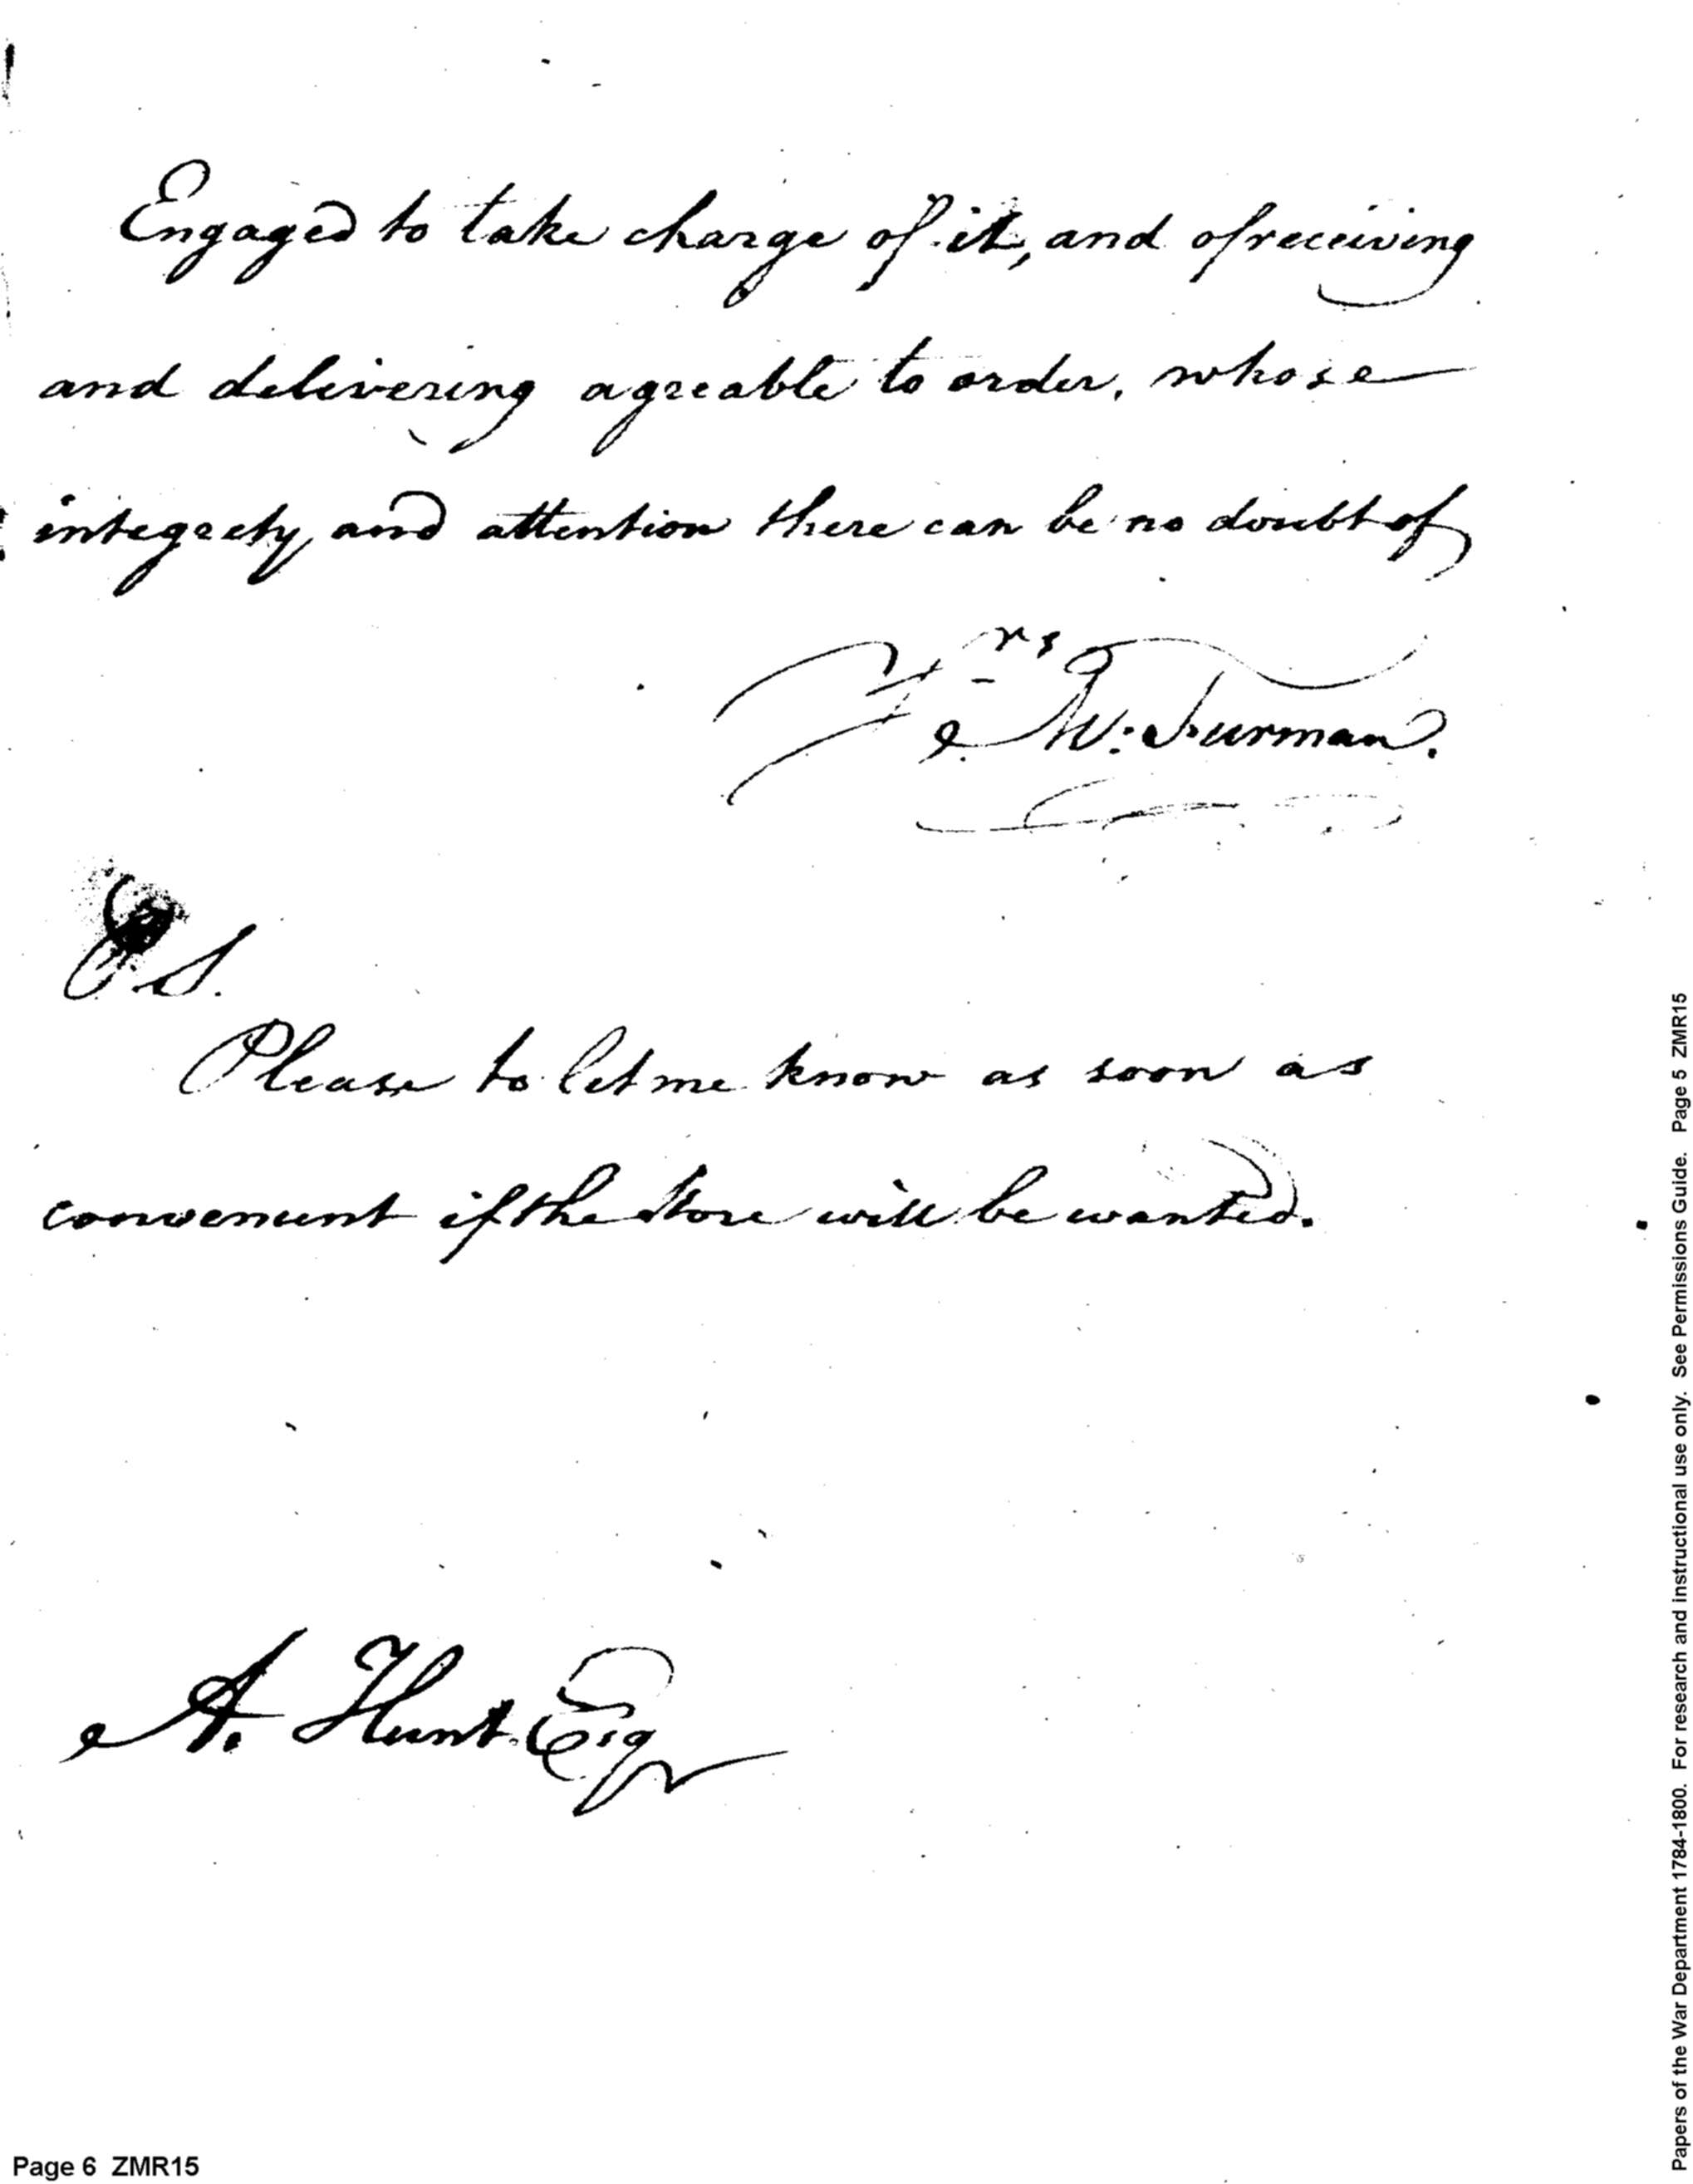 Engaged to take charge of it, and of receiving
and delivering agreable to order, whose
integrety and attention there can be no doubt of
Yrs
W: Furman.
P.S.
Please to let me know as soon as
convenient if the Store will be wanted.
A. Hunt. Esqr
Page 6 ZMR15
Papers of the War Department 1784-1800. For research and instructional use only. See Permissions Guide. Page 5 ZMR15